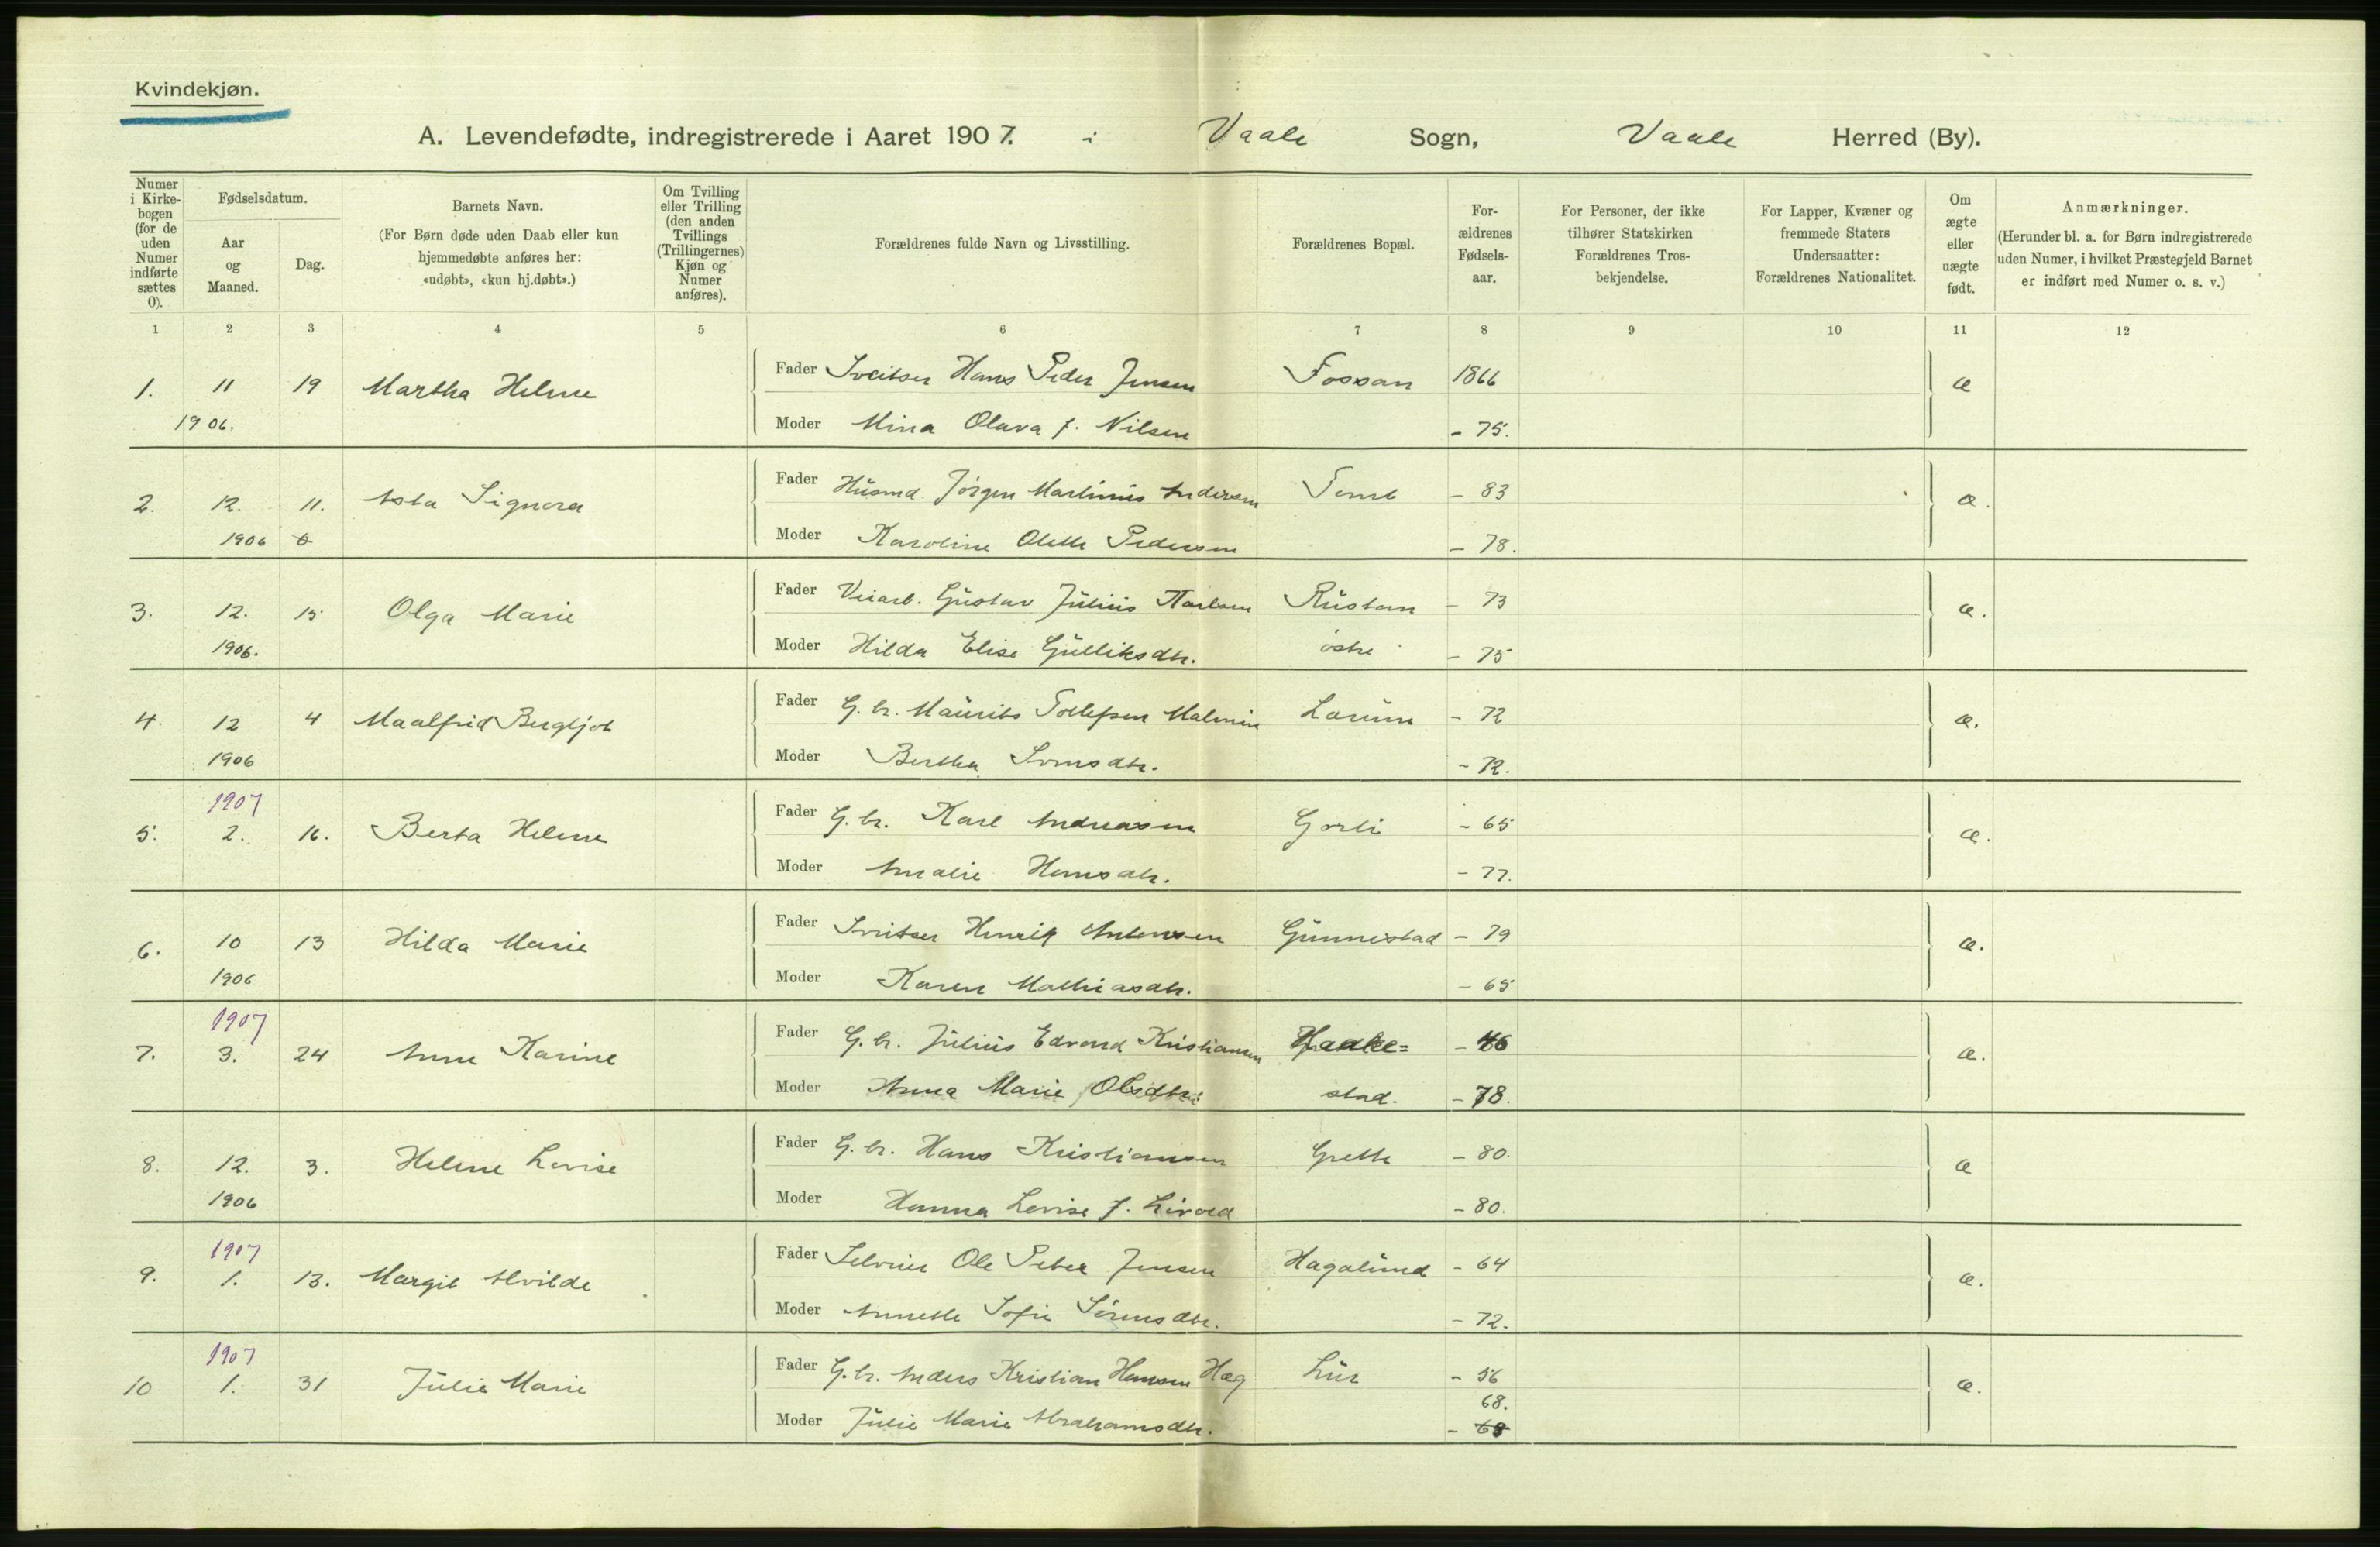 Kvindekjøn.
A. Levendefødte, indregistrerede i Aaret 1907. i Vaale Sogn, Vaale Herred (By).
Numer i Kirkebogen (for de uden Numer indførte sættes 0).
Fødselsdatum.
Aar og Maaned.
Dag.
Barnets Navn.
(For Børn døde uden Daab eller kun hjemmedøbte anføres her: «udøbt», «kun hj.døbt».)
Om Tvilling eller Trilling (den anden Tvillings (Trillingernes) Kjøn og Numer anføres).
Forældrenes fulde Navn og Livsstilling.
Forældrenes Bopæl.
Forældrenes Fødselsaar.
For Personer, der ikke tilhører Statskirken Forældrenes Trosbekjendelse.
For Lapper, Kvæner og fremmede Staters Undersaatter: Forældrenes Nationalitet.
Om ægte eller uægte født.
Anmærkninger.
(Herunder bl. a. for Børn indregistrerede uden Numer, i hvilket Præstegjeld Barnet er indført med Numer o. s. v.)
1 2 3 4 5 6 7 8 9 10 11 12
1. 11 19 Martha Helene Fader Sveitser Hans Peder Jensen Fossan 1866 æ
1906. Moder Mina Olava f. Nilsen - 75.
2. 12. 11. Asta Signora Fader Husmd. Jørgen Martinius Andersen - 83 æ.
1906 Moder Karoline Olette Pedersen - 78.
3. 12. 15 Olga Marie Fader Veiarb. Gustav Julius Karlsen Rustan - 73 æ.
1906. Moder Hilda Elise Gulliksdtr. østre - 75
4. 12 4 Maalfrid Bergljot Fader G. br. Maurits Tollefsen Malmin - 72 æ.
1906 Moder Bertha Svensdtr. - 72.
1907
5. 2. 16. Berta Helene Fader G. br. Karl Andreasen - 65 æ.
Moder Amalie Hansdtr. - 77.
6. 10 13 Hilda Marie Fader Sveitser Henrik Antensen Gunnestad - 79 æ.
1906 Moder Karen Mathiasdtr. - 65
1907
7. 3. 24 Anne Karine Fader G. br. Julius Edvard Kristiansen - 76 æ.
Moder Anna Marie Olsdtr. stad. - 78.
8. 12. 3. Helene Lovise Fader G. br. Hans Kristiansen Grette - 80. æ
1906 Moder Hanna Lovise f. - 80.
1907
9. 1. 13. Margit Alvilde Fader Selveier Ole Peter Jensen Hagalund - 64 æ.
Moder Annette Sofie Sørensdtr. - 72.
1907
10 1. 31 Julie Marie Fader G. br. Anders Kristian Hansen Hæg Lur - 56 æ.
68.
Moder Julie Marie Abrahamsdtr.